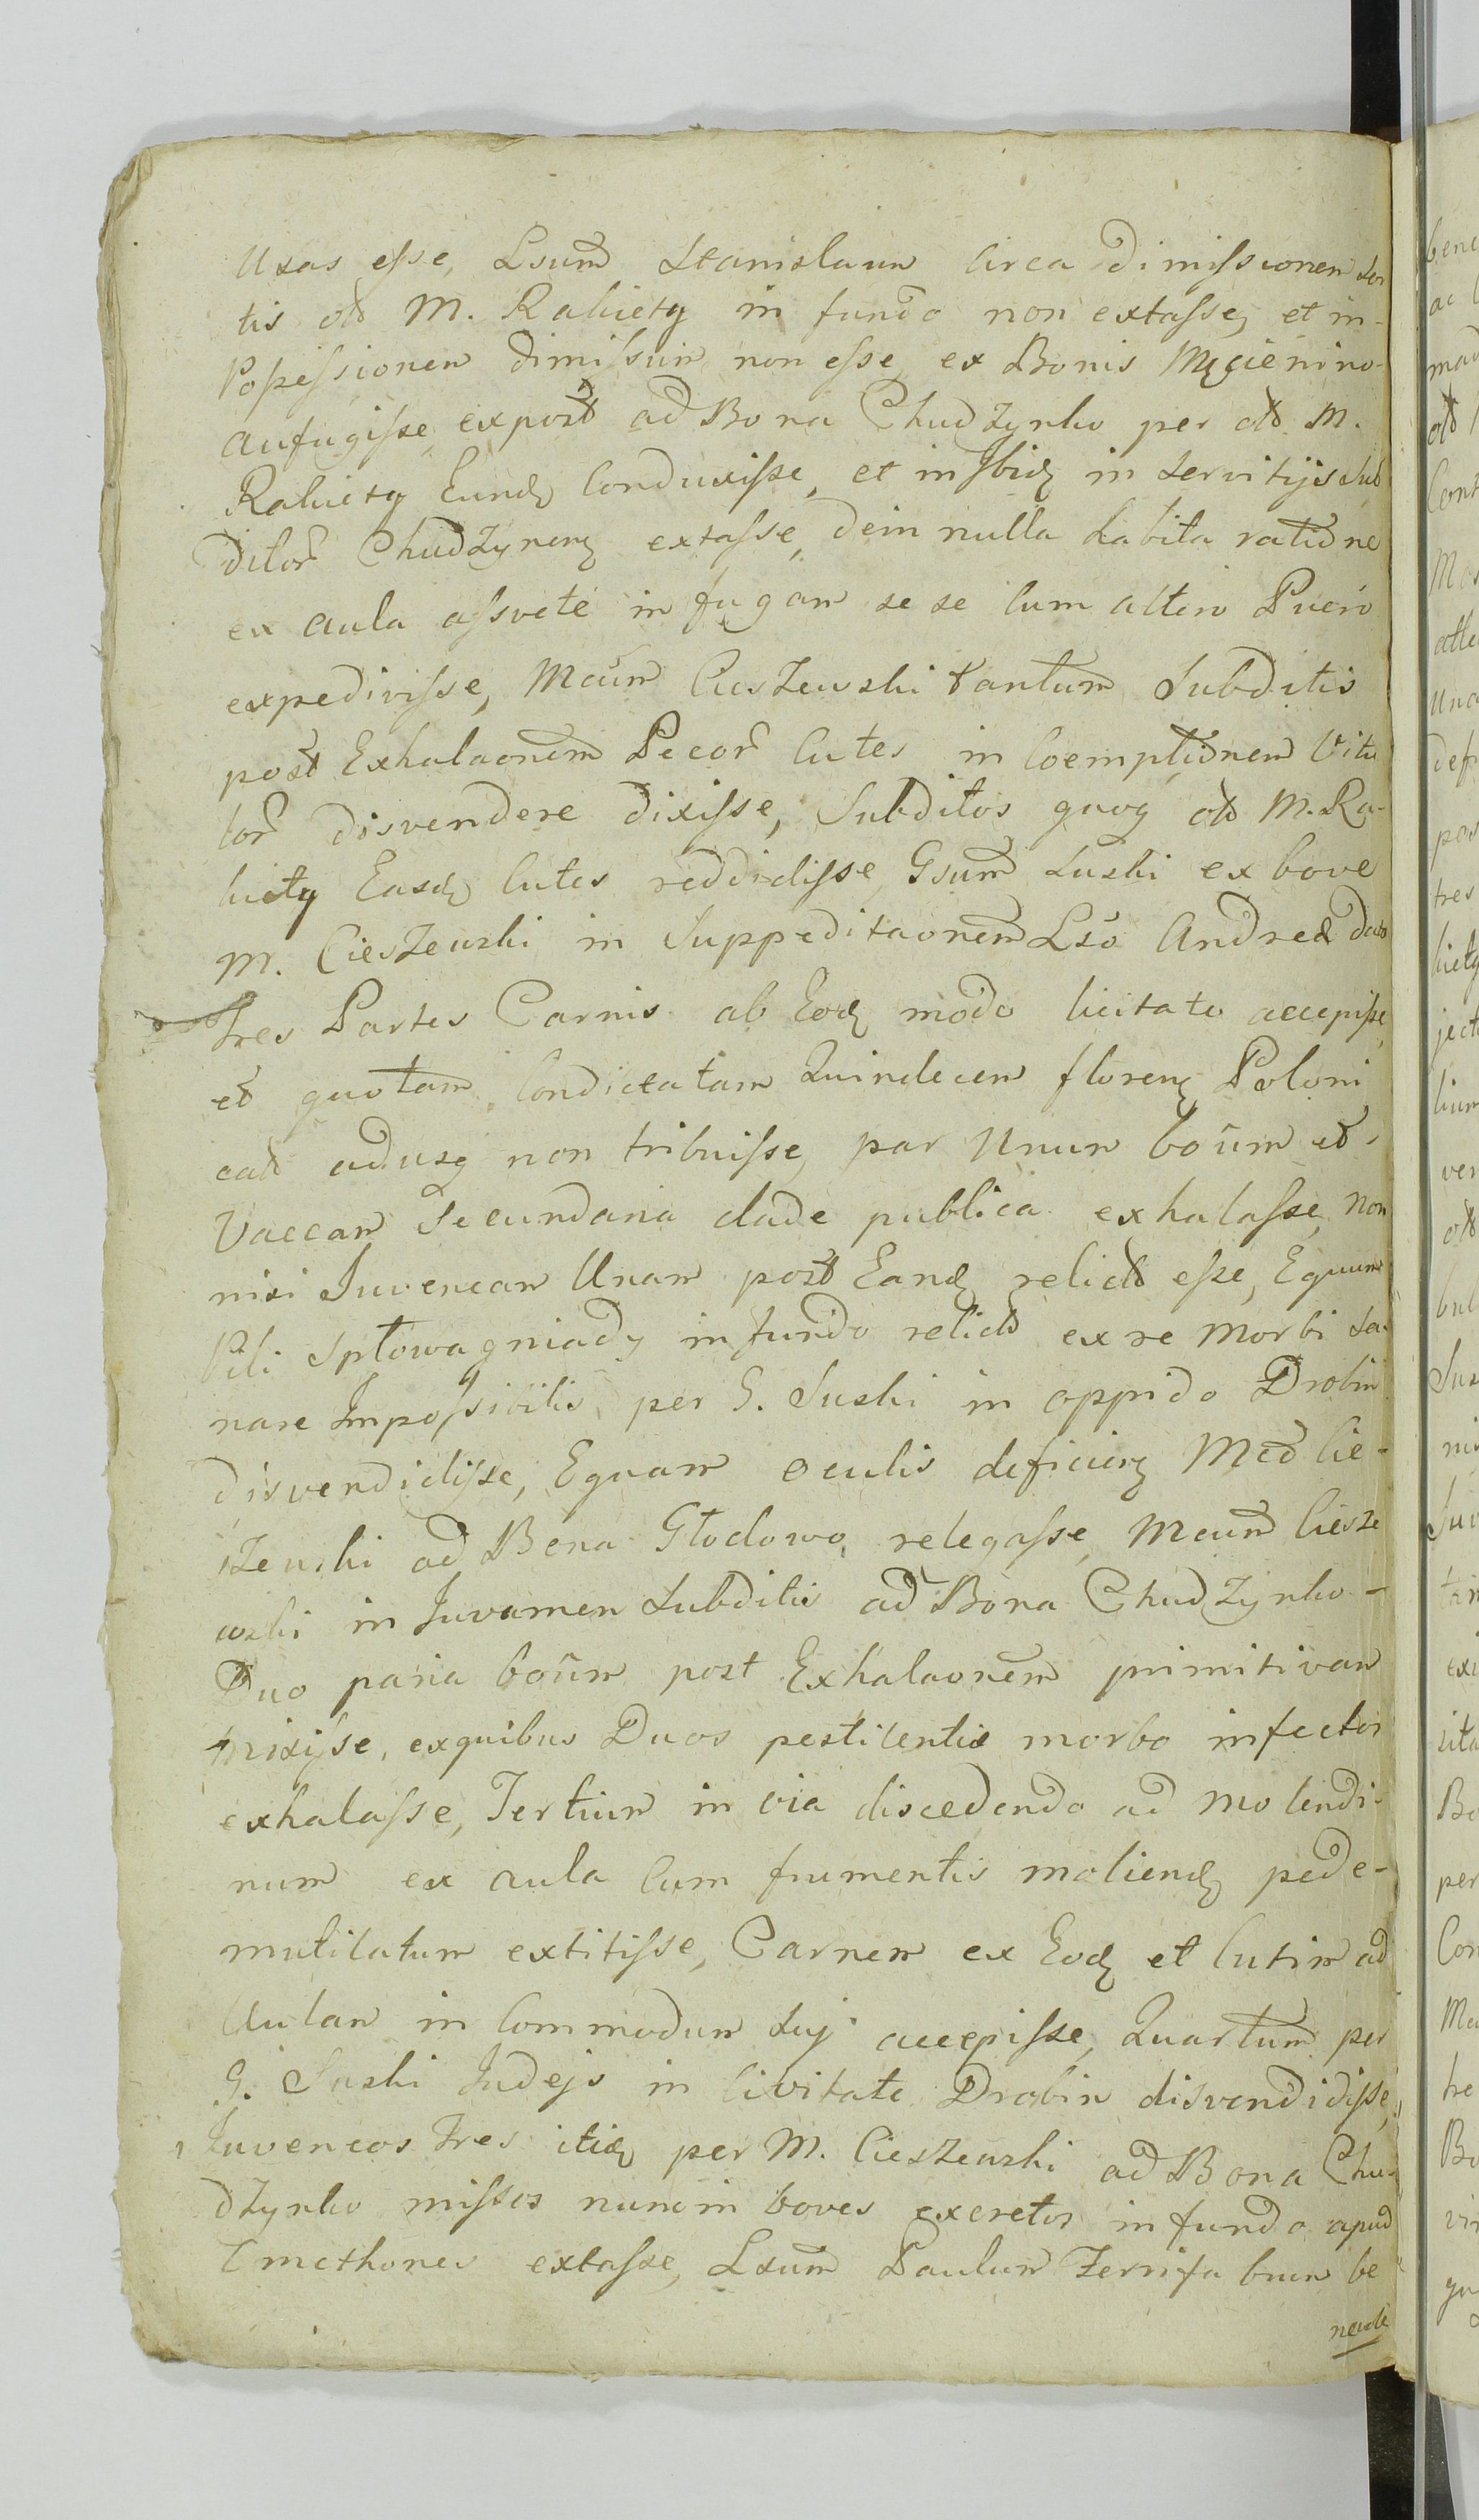 uxas esse, Lsum̃ Stanislaum circa dimissionem Sor
tis ol̃s M. Rakiety in fundo non extasse, et in
Possessionem dimissum non esse, ex Bonis Męcienino
aufugisse, expost ad Bona Chudzynko per ol̃s M.
Rakiety Eundȩ conduxisse, et in Ibidȩ in servitijs Sub
ditor̃ Chudzynenȩ extasse, dein nulla habita ratione
ex aula assvete in fugam se se cum altero Puero
expedivisse, Mcum̃ Cieszewski tantum Subditis
post Exhalaonem̃ Pecor̃ Cutes in Coemptionem Vitu
lor̃ disvendere dixisse, Subditos quoq ol̃s M. Ra-
kiety Easdȩ Cutes reddidisse, Gsum̃ Suski ex bove
M. Cieszewski in Suppeditaonem̃ Lso Andreæ dato
Tres Partes Carnis ab Eodȩ modo licitato accepisse
et quotam Condictatam Quindecem florenȩ Poloni
cal̃s adusq non tribuisse, par Unum boûm et
Vaccam Secundaria clade publica exhalasse, non
nisi Juvencam Unam post Eandȩ relict̃s esse, Equum
Pili Spłowagniady in fundo relict̃s ex re Morbi Sa-
nare Impossibilis per G. Suski in oppido Drobin
disvendidisse, Equam oculis deficienȩ Mcd Cie-
szewski ad Bona Głodowo, relegasse, Mcum̃ Ciesze
wski in Juvamen Subditis ad Bona Chudzynko-
Duo paria boûm post Exhalaonem̃ primitivam
misisse, ex quibus Duos pestilentiæ morbo infectos
exhalasse, Tertium in via discedendo ad molendi-
num ex aula cum frumentis moliendȩ pede-
mutilatum extitisse, Carnem ex Eodȩ et Cutim ad
Aulam in Commodum Suj accepisse, Quartum per
G. Suski Judejs in Civitate Drobin disvendidisse,
Juvencos tres itidȩ per M. Cieszewski ad Bona Chu-
dzynko missos nunc in boves excretos in fundo apud
Cmethones extasse, Lsum̃ Paulum Zerrifabrum be